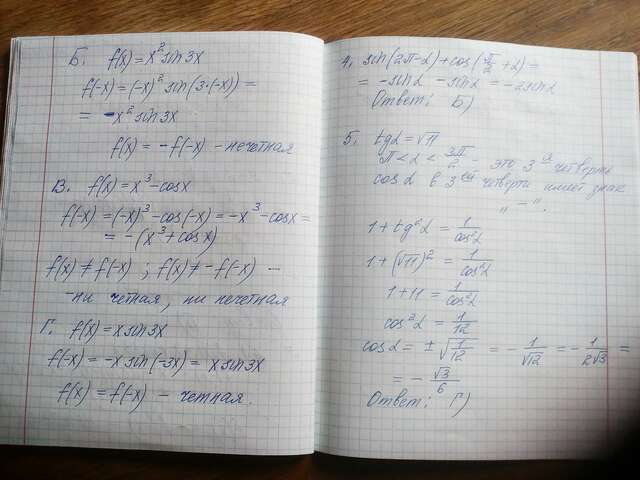 Б. f(x) = x² sin 3x
f(-x) = (-x)² sin(3·(-x)) =
= -x² sin 3x
f(x) = -f(-x) - нечетная
В. f(x) = x³ - cosx
f(-x) = (-x)³ - cos(-x) = -x³ - cosx =
= -(x³ + cosx)
f(x) ≠ f(-x) ; f(x) ≠ -f(-x) -
-ни четная, ни нечетная
Г. f(x) = x sin 3x
f(-x) = -x sin(-3x) = x sin 3x
f(x) = f(-x) - четная.
4. sin(2π-α) + cos(π/2 + α) =
= -sinα - sinα = -2sinα
Ответ: Б)
5. tgα = √11
π < α < 3π/2 - это 3й четверть
cosα в 3ей четверти имеет знак
„-“.
1 + tg²α = 1/cos²α
1 + (√11)² = 1/cos²α
1 + 11 = 1/cos²α
cos²α = 1/12
cosα = ±√(1/12) = -1/√12 = -1/2√3 =
= -√3/6
Ответ: Г)